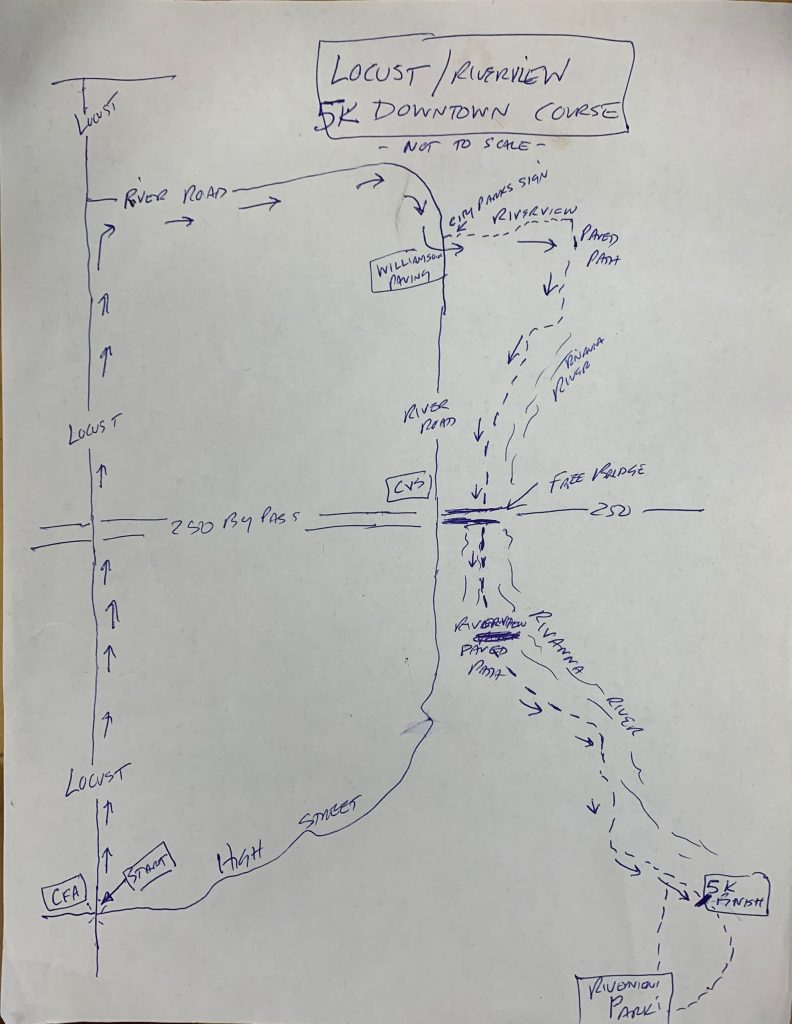 LOCUST / RIVERVIEW
5K DOWNTOWN COURSE
- NOT TO SCALE -
LOCUST
RIVER ROAD
CITY PARKS SIGN
RIVERVIEW
PAVED
PATH
WILLIAMSON
PAVING
RIVANNA
RIVER
LOCUST
RIVER
ROAD
CVS
FREE BRIDGE
250 BY PASS
250
RIVERVIEW
PAVED
PATH
RIVANNA
RIVER
LOCUST
HIGH STREET
START
CFA
5K
FINISH
RIVERVIEW
PARK